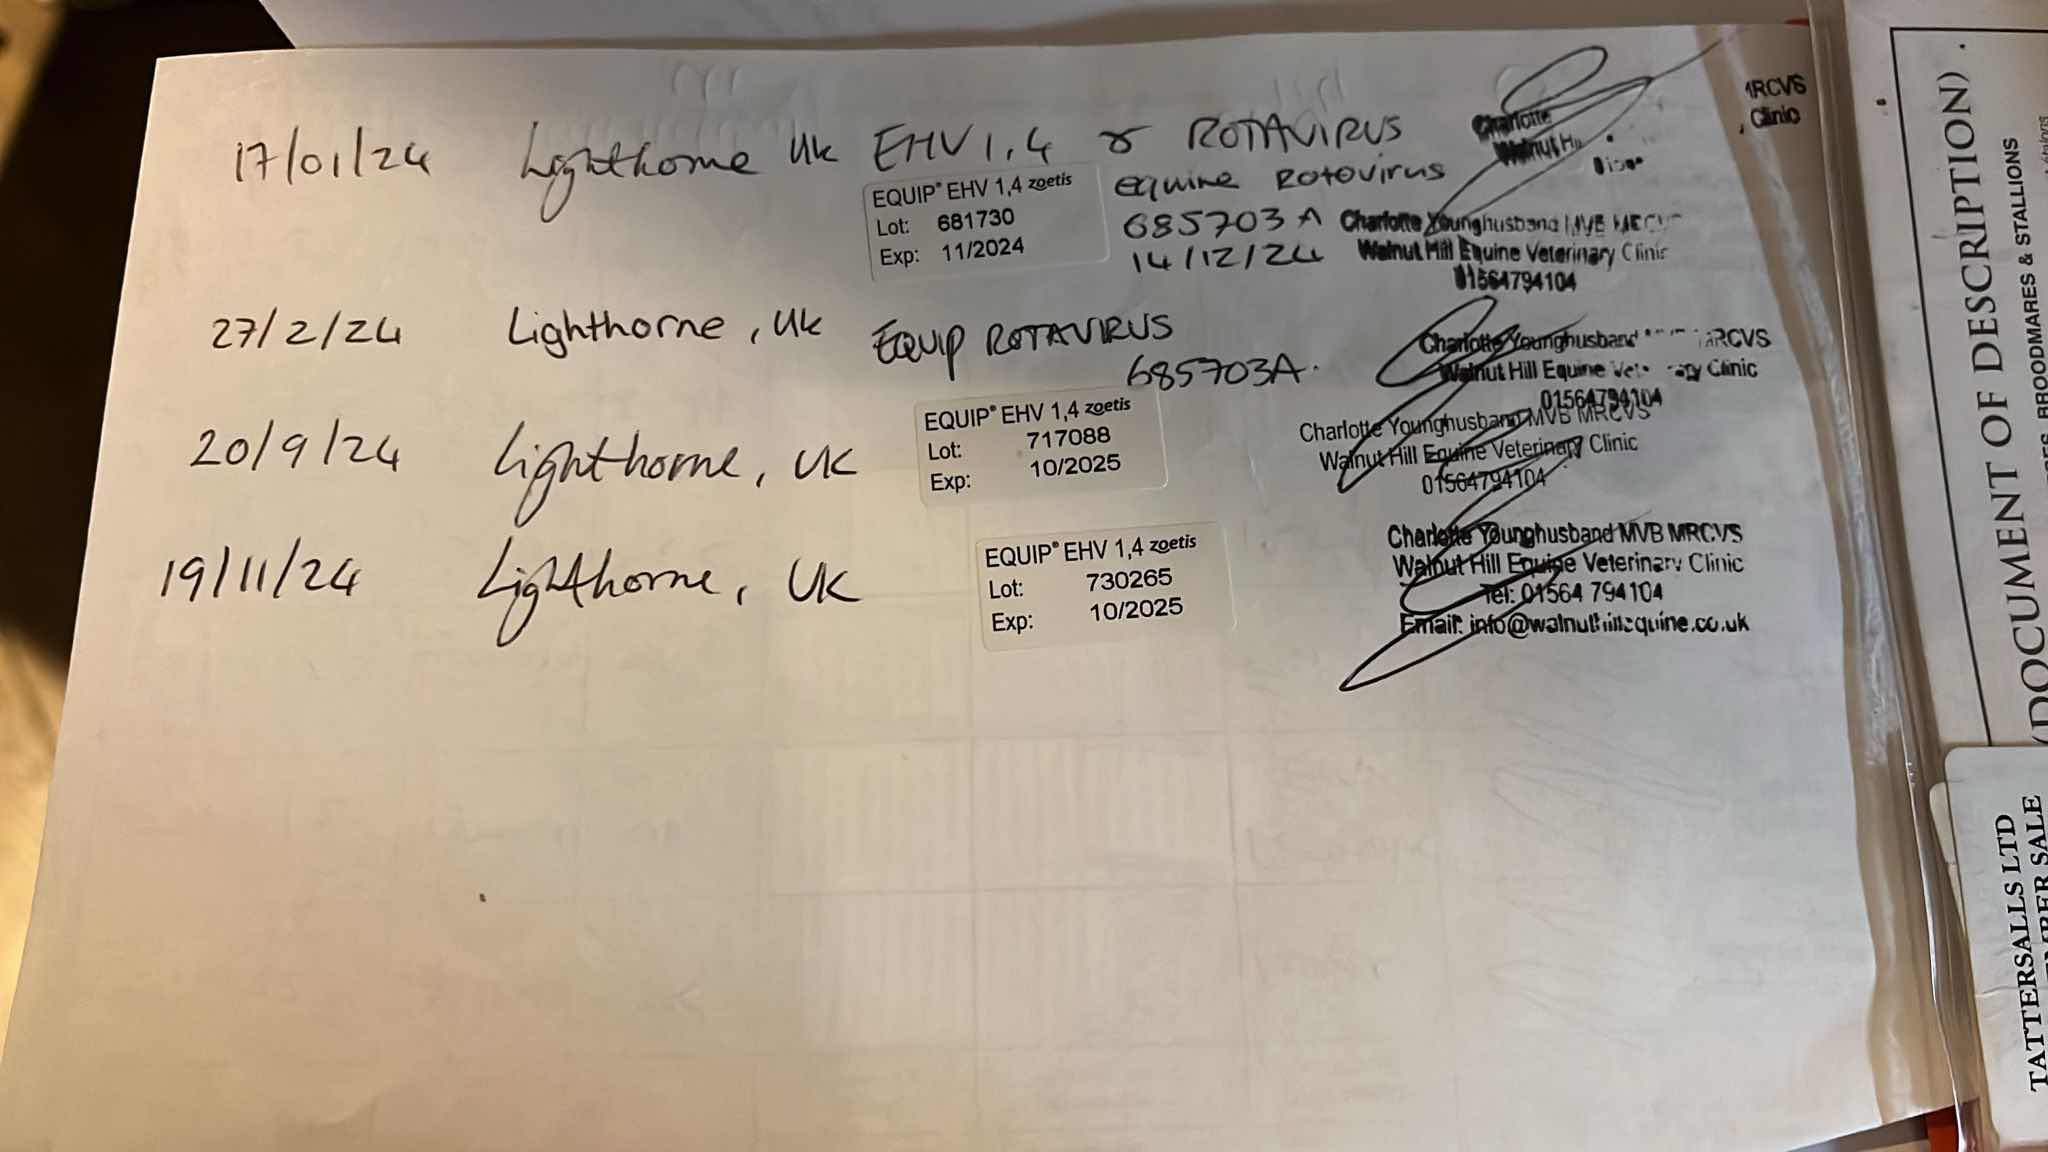 17/01/24 Lighthorne UK EHV 1,4 & ROTAVIRUS
EQUIP® EHV 1,4 zoetis
Lot: 681730
Exp: 11/2024
equine Rotavirus
685703A
14/12/24
Charlotte
Walnut Hi
Charlotte Younghusband MVB MRCVS
Walnut Hill Equine Veterinary Clinic
01564794104
MRCVS
Clinic
27/2/24 Lighthorne, UK EQUIP ROTAVIRUS
685703A.
Charlotte Younghusband MRCVS
Walnut Hill Equine Clinic
01564794104
20/9/24 Lighthorne, UK
EQUIP® EHV 1,4 zoetis
Lot: 717088
Exp: 10/2025
Charlotte Younghusband MVB MRCVS
Walnut Hill Equine Veterinary Clinic
01564794104
19/11/24 Lighthorne, UK
EQUIP® EHV 1,4 zoetis
Lot: 730265
Exp: 10/2025
Charlotte Younghusband MVB MRCVS
Walnut Hill Equine Veterinary Clinic
Tel: 01564 794104
Email: info@walnuthillequine.co.uk
(DOCUMENT OF DESCRIPTION)
BROODMARES & STALLIONS
TATTERSALLS LTD
SALE